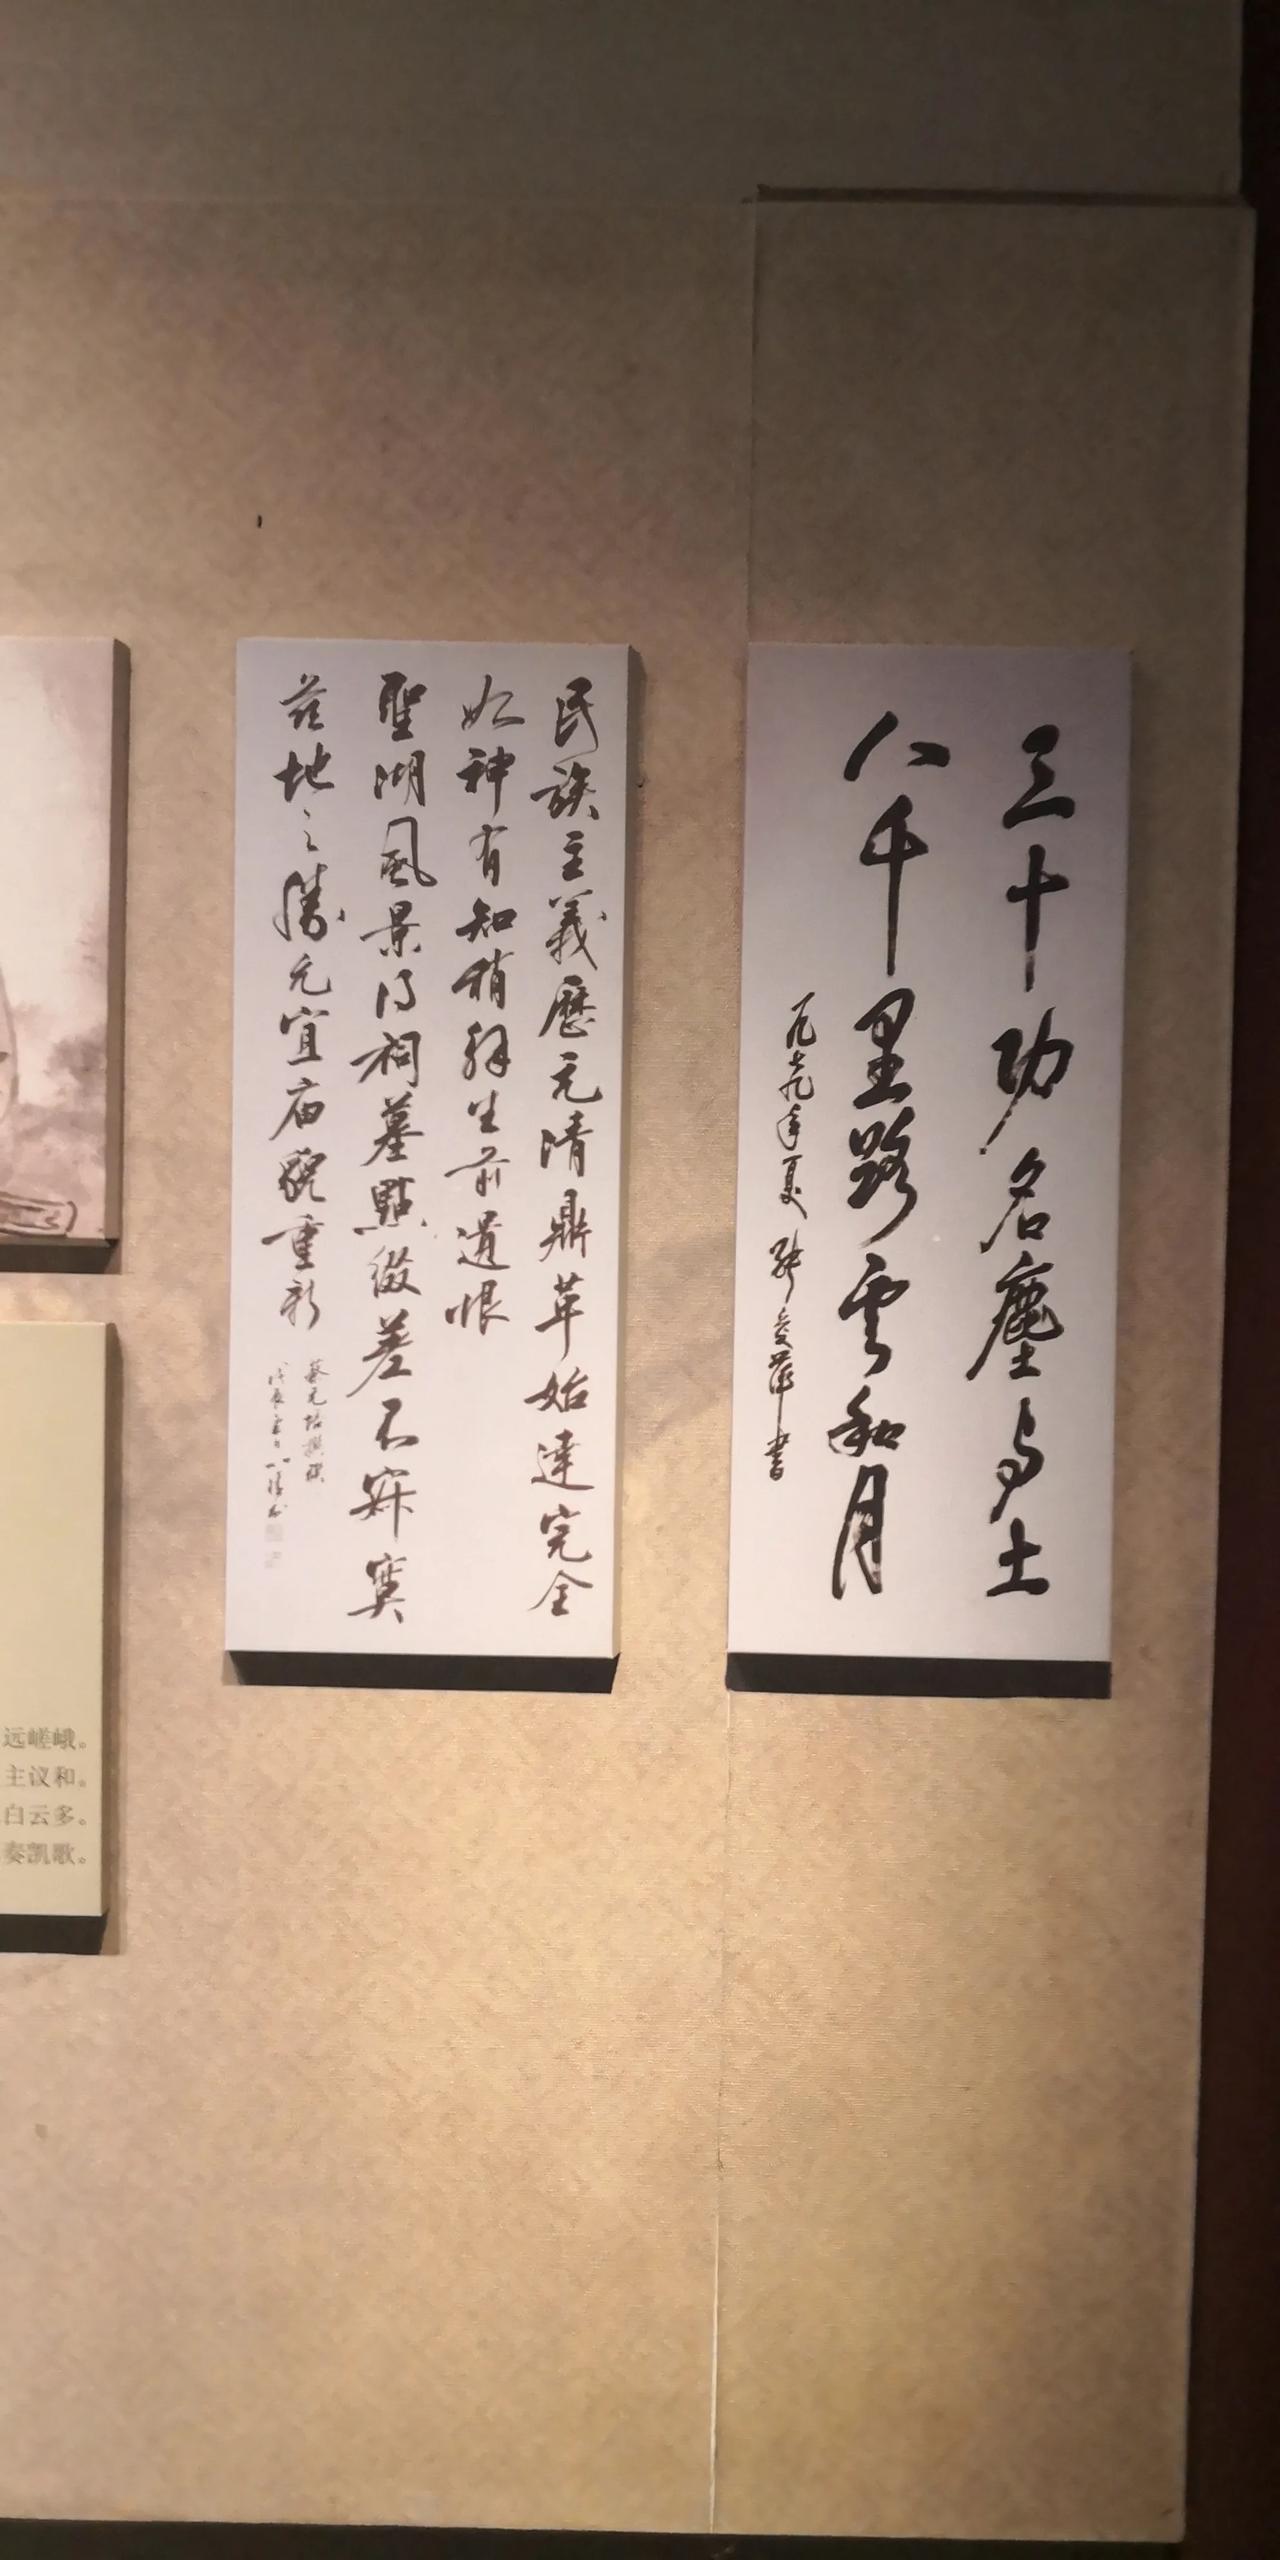 三十功名塵与土
八千里路雲和月
一九七九年夏 張愛萍書
民族主義歷元清鼎革始達完全
如神有知稍釋生前遺恨
聖湖風景得祠墓點綴差不寂寞
茲地之勝允宜廟貌重新
蔡元培撰聯
戊辰
远嵯峨。
主议和。
白云多。
奏凯歌。